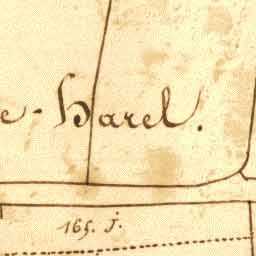 e-Harel.
165. J.